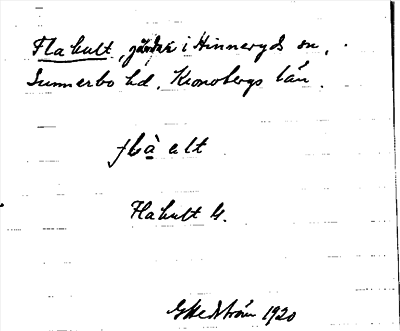 Flahult, gårdar i Hinneryds sn,
Sunnerbo hd. Kronobergs län.
flà​ ult
Flahult G.
G Hedström 1920